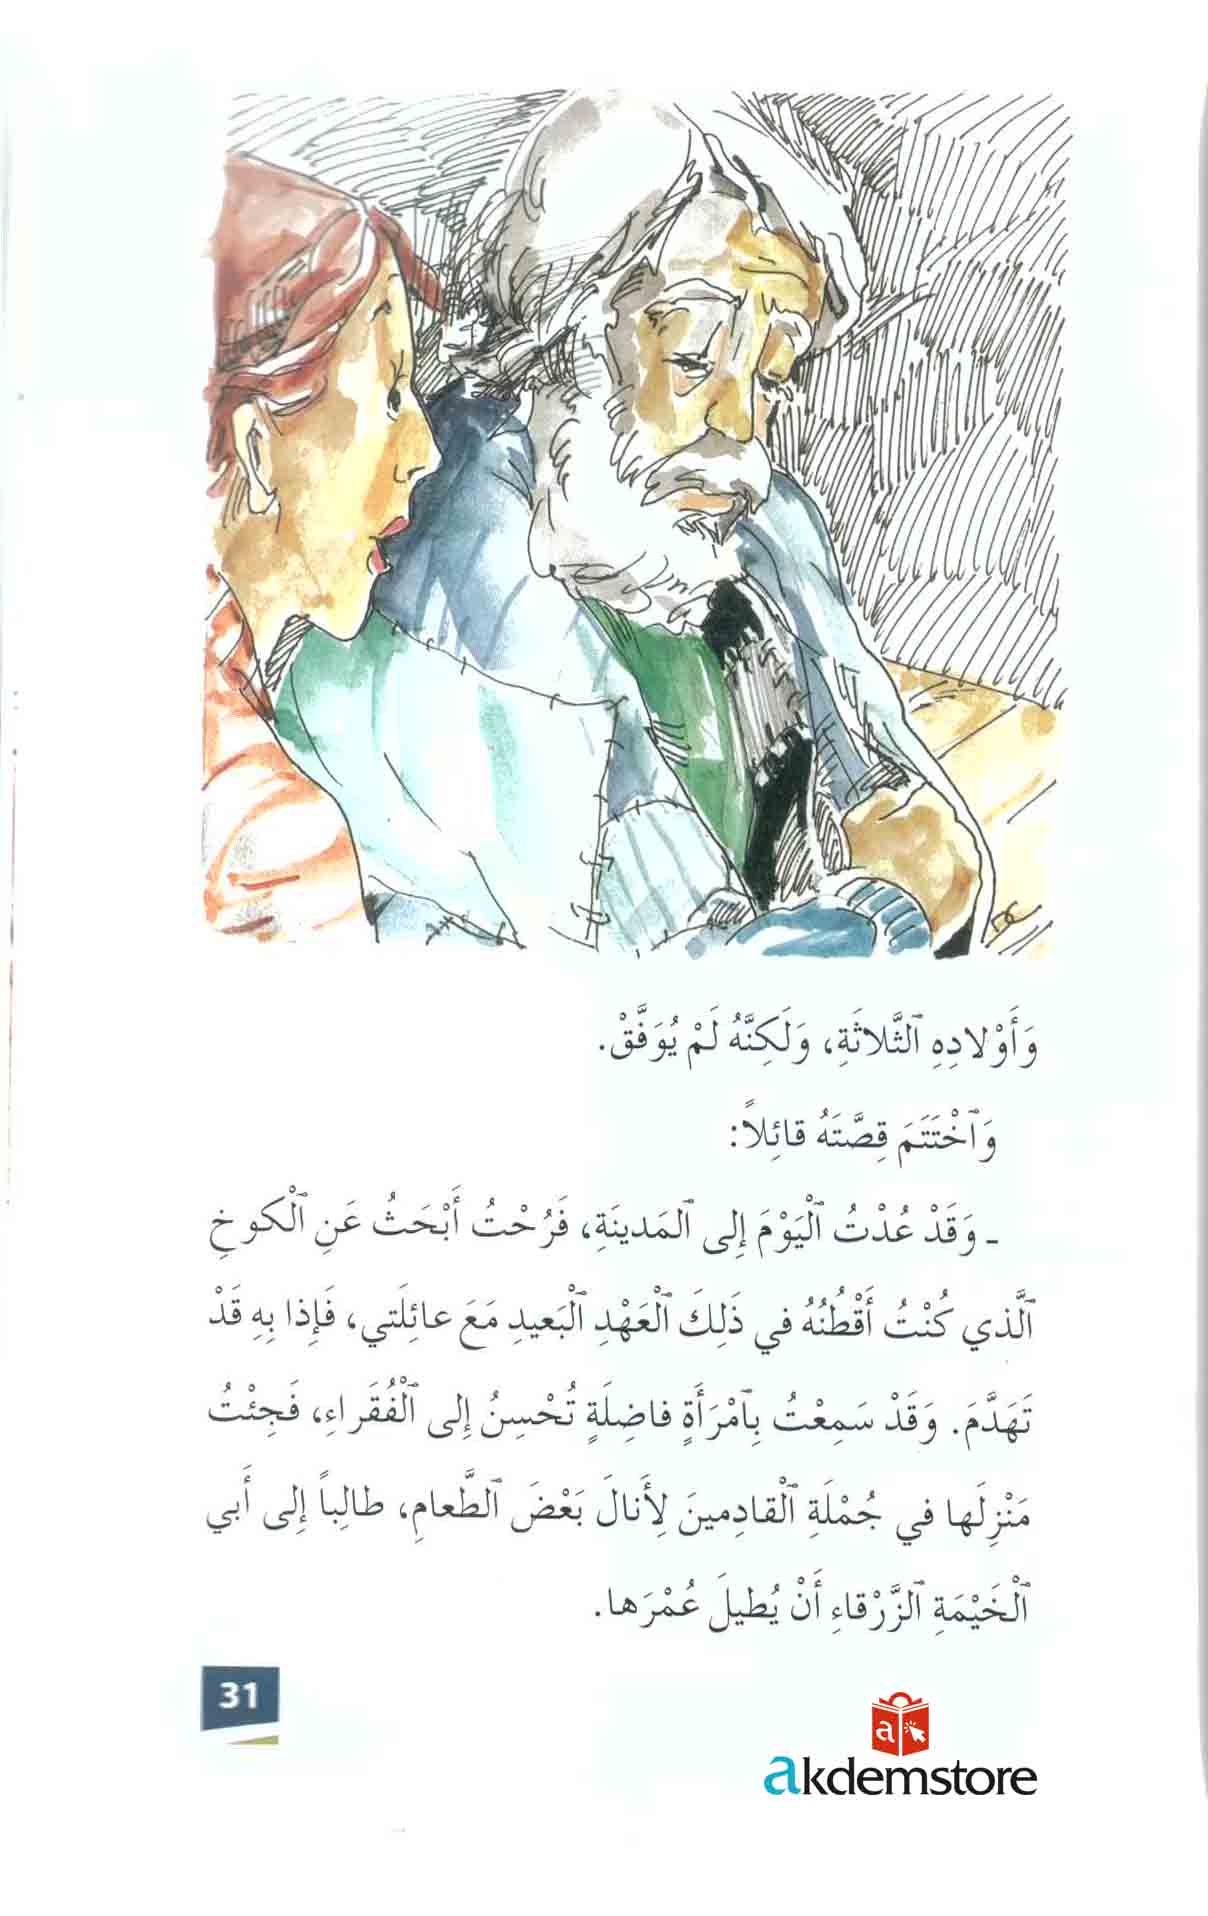 وَأَوْلادِهِ ٱلثَّلاثَةِ، وَلَكِنَّهُ لَمْ يُوَفَّقْ.
وَٱخْتَتَمَ قِصَّتَهُ قائِلاً:
ـ وَقَدْ عُدْتُ ٱلْيَوْمَ إِلى ٱلمَدينَةِ، فَرُحْتُ أَبْحَثُ عَنِ ٱلْكوخِ
ٱلَّذي كُنْتُ أَقْطُنُهُ في ذَلِكَ ٱلْعَهْدِ ٱلْبَعيدِ مَعَ عائِلَتي، فَإِذا بِهِ قَدْ
تَهَدَّمَ. وَقَدْ سَمِعْتُ بِٱمْرَأَةٍ فاضِلَةٍ تُحْسِنُ إِلى ٱلْفُقَراءِ، فَجِئْتُ
مَنْزِلَها في جُمْلَةِ ٱلْقادِمينَ لِأَنالَ بَعْضَ ٱلطَّعامِ، طالِباً إِلى أَبي
ٱلْخَيْمَةِ ٱلزَّرْقاءِ أَنْ يُطيلَ عُمْرَها.
31
a
akdemstore